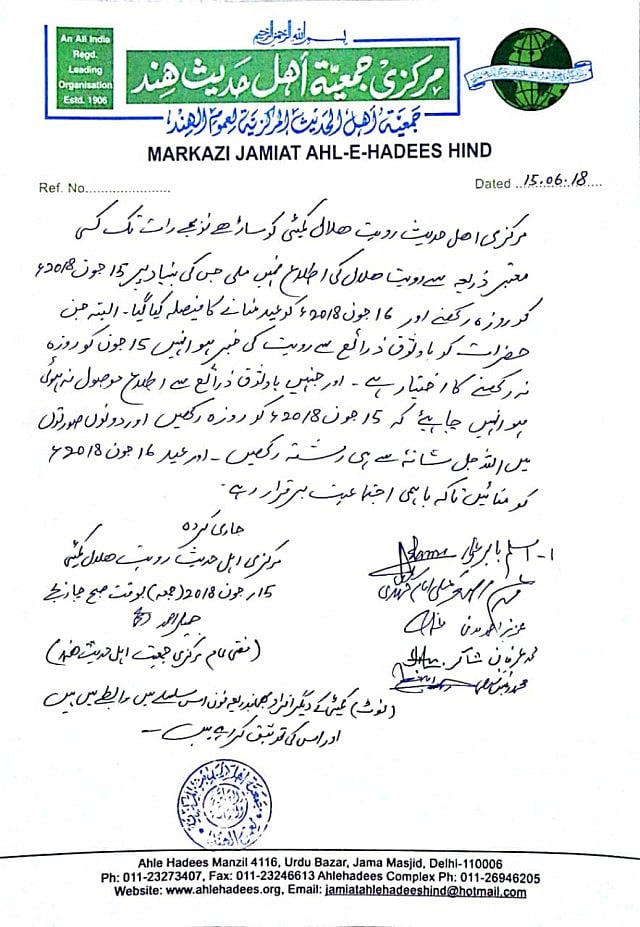 بسم الله الرحمن الرحيم
An All India
Regd.
Leading
Organisation
Estd. 1906
مرکزی جمعیة أهل حدیث هند
جمعية أهل الحديث المركزية لعموم الهند
MARKAZI JAMIAT AHL-E-HADEES HIND
Ref. No.....................
Dated ..15.06.18....
مرکزی اهل حدیث رویت هلال کمیٹی کو ساڑھے نو بجے رات تک کسی
معتبر ذریعہ سے رویت هلال کی اطلاع نہیں ملی جس کی بنیاد پر 15 جون 2018ء
کو روزہ رکھنے اور 16 جون 2018ء کو عید منانے کا فیصلہ کیا گیا۔ البتہ جن
حضرات کو باوثوق ذرائع سے رویت کی خبر ہو انہیں 15 جون کو روزہ
نہ رکھنے کا اختیار ہے۔ اور جنہیں باوثوق ذرائع سے اطلاع موصول نہ ہوئی
ہو انہیں چاہیئے کہ 15 جون 2018ء کو روزہ رکھیں اور دونوں صورتوں
میں اللہ جل شانہٗ سے ہی رشتہ رکھیں۔ اور عید 16 جون 2018ء
کو منائیں تاکہ باہمی اجتماعیت برقرار رہے۔
جاری کردہ
مرکزی اہل حدیث رویت هلال کمیٹی
15؍ جون 2018 (جمعہ) بوقت صبح چار بجے
جمیل احمد
(مفتی عام مرکزی جمعیت اہل حدیث هند)
۱- اسلم
عزیر احمد مدنی
محمد عرفان شاکر
(نوٹ) کمیٹی کے دیگر افراد بھی بذریعہ فون اس سلسلہ میں رابطے میں ہیں
اور اس کی توثیق کر رہے ہیں۔
Ahle Hadees Manzil 4116, Urdu Bazar, Jama Masjid, Delhi-110006
Ph: 011-23273407, Fax: 011-23246613 Ahlehadees Complex Ph: 011-26946205
Website: www.ahlehadees.org, Email: jamiatahlehadeeshind@hotmail.com